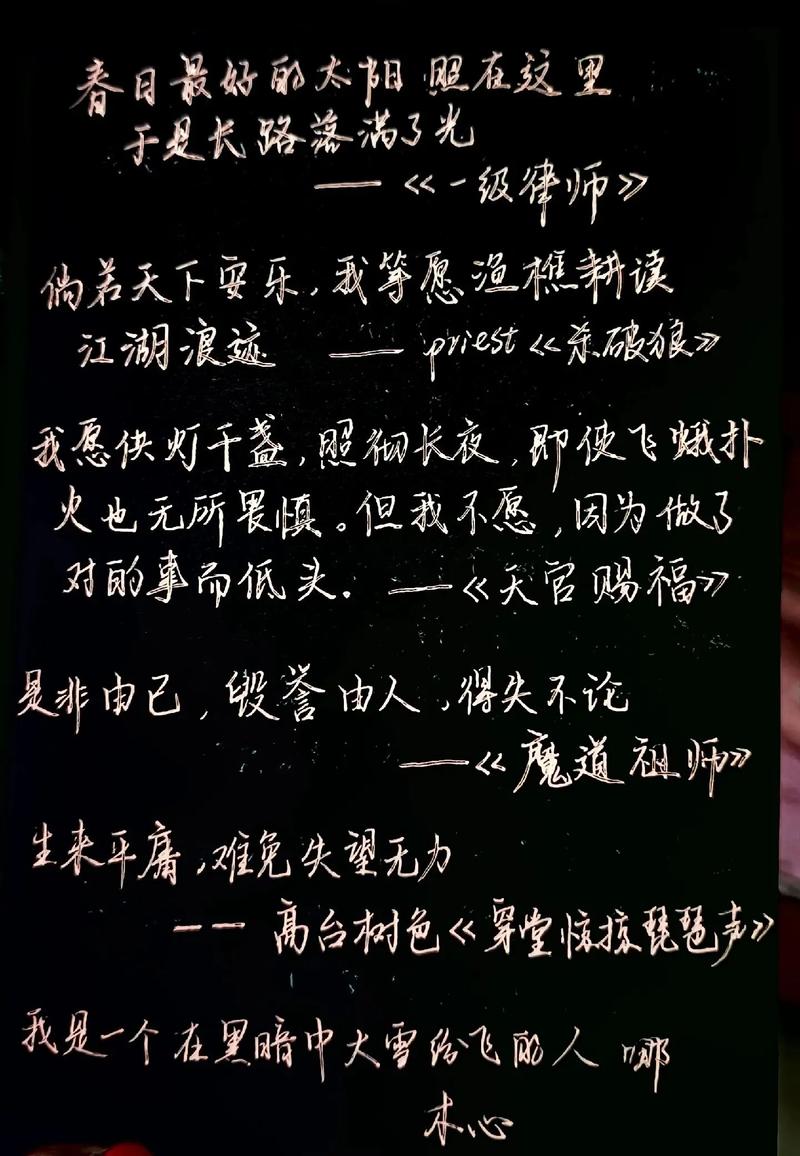 春日最好的太阳照在这里
于是长路落满了光
——《一级律师》
倘若天下安乐,我等愿渔樵耕读
江湖浪迹 —— priest《杀破狼》
我愿供灯千盏,照彻长夜,即使飞蛾扑
火也无所畏惧。但我不愿,因为做了
对的事而低头.——《天官赐福》
是非由己,毁誉由人,得失不论
——《魔道祖师》
生来平庸,难免失望无力
—— 高台树色《穿堂惊掠琵琶声》
我是一个在黑暗中大雪纷飞的人哪
木心